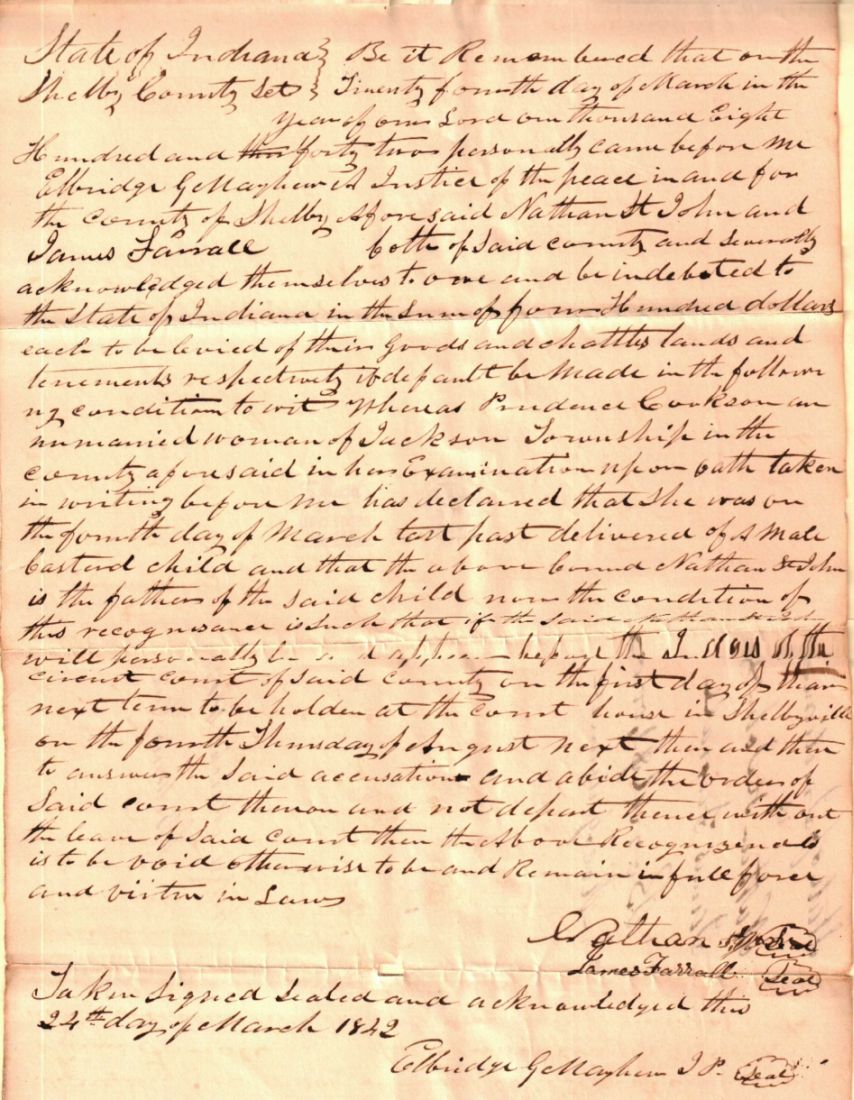 State of Indiana } Be it Remembered that on the
Shelby County Set } Twenty fourth day of March in the
Year of our Lord one thousand Eight
Hundred and forty two personally came before me
Elbridge G Mayhew A Justice of the peace in and for
the County of Shelby Aforesaid Nathan St John and
James Farrall both of said county and severally
acknowledged themselves to owe and be indebted to
the State of Indiana in the sum of four Hundred dollars
each to be levied of their Goods and chattles lands and
tenements respectivly if default be made in the follow
ng condition to wit Whereas Prudence Cookson an
unmarried woman of Jackson Township in the
county aforesaid in her Examination upon oath taken
in writing before me has declared that she was on
the fourth day of March last past delivered of A male
basterd child and that the above bound Nathan St John
is the father of the said child now the condition of
this recognisance is such that if the said
will personally be appear before the Judges of the
circut court of said county on the first day of their
next term to be holden at the court house in Shelbyville
on the fourth Thursday of August next then and there
to answer the said accusation and abide the orders of
said court thereon and not depart thence without
the leave of said court then the Above
is to be void otherwise to be and Remain in full force
and virtue in Law
Nathan Seal
James Farrall Seal
Taken Signed Sealed and acknowledged this
24th day of March 1842
Elbridge G Mayhew J P. Seal